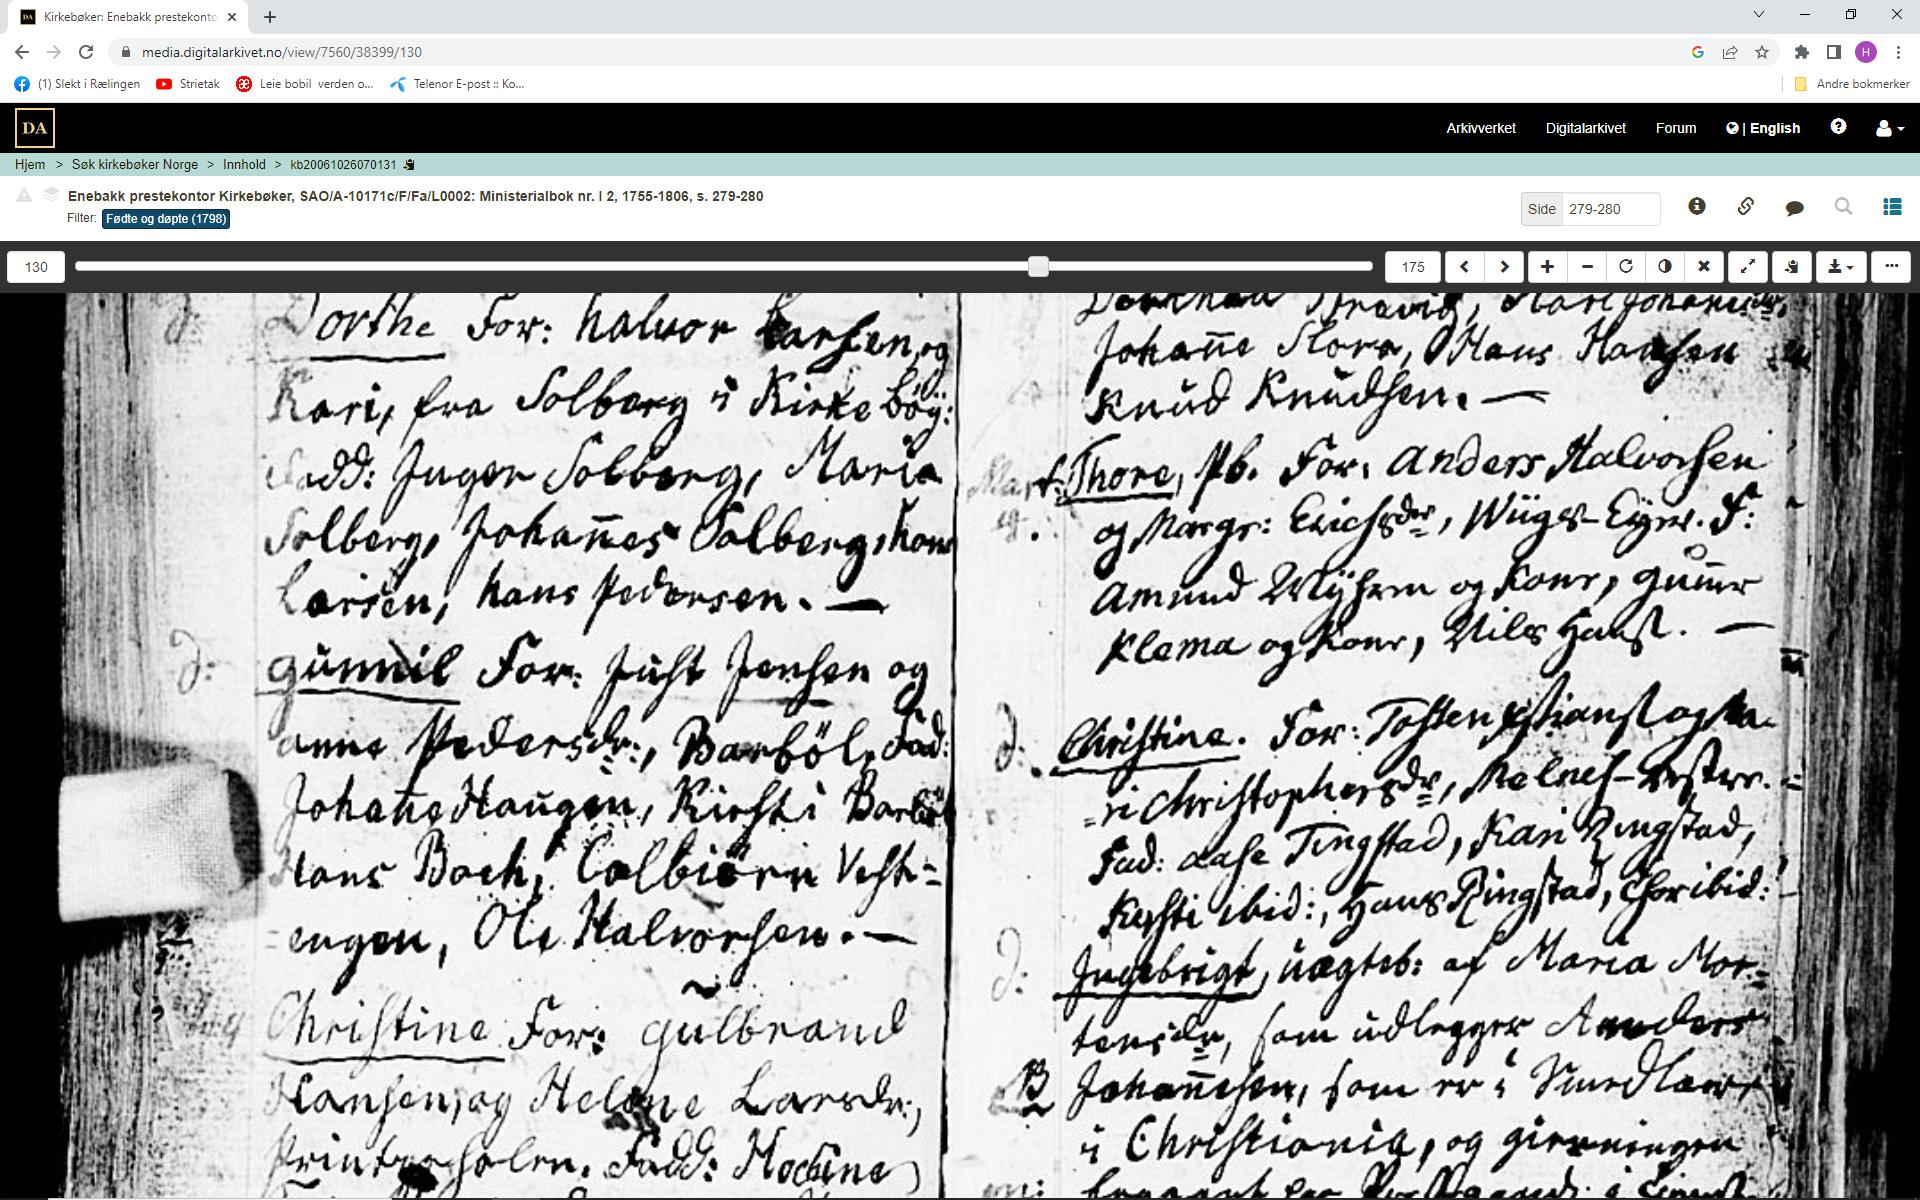 Kirkebøker: Enebakk prestekonto
media.digitalarkivet.no/view/7560/38399/130
H
(1) Slekt i Rælingen
Strietak
Leie bobil verden o...
Telenor E-post :: Ko...
Andre bokmerker
DA
Arkivverket
Digitalarkivet
Forum
| English
Hjem > Søk kirkebøker Norge > Innhold > kb20061026070131
Enebakk prestekontor Kirkebøker, SAO/A-10171c/F/Fa/L0002: Ministerialbok nr. I 2, 1755-1806, s. 279-280
Filter: Fødte og døpte (1798)
Side 279-280
130
175
d:
Dorthe For: halvor Larsen, og
Kari, fra Solberg i Kirkeböy:
Fadd: Inger Solberg, Maria
Solberg, Johan̄es Solberg, hans
Larsen, hans Pedersen. —
d:
gunnil For: Just Jensen og
anne Pedersdr:, Barböl, Fad:
Johan̄e Haugen, Kirsti Barböl
Hans Boeh, Colbiörn Vest=
=engen, Ole Halvorsen. —
Christine For: gulbrand
Hansen, og Helene Larsdr:,
Fadd:
Johan̄e Flora, Hans Hansen
Knud Knudsen. —
Mart:
Thore, Pb. For: Anders Halvorsen
og Margr: Erichsdr, Wüges-Eyer. F:
Amund og Konr, Gum̄er
Klema og Konr, Nils Hanss. —
d:.
Christine. For: Tosten xstianss og Ka=
=ri Christophersdr,
Fad: Aase Tingstad, Kari Ringstad,
Kersti ibid:, Hans Ringstad, Chr ibid:
d:
Ingebrigt, uægteb: af Maria Mor=
tensdr, som udlegger Anders
B
Johan̄esen, som er i
i Christiania, og gierningen